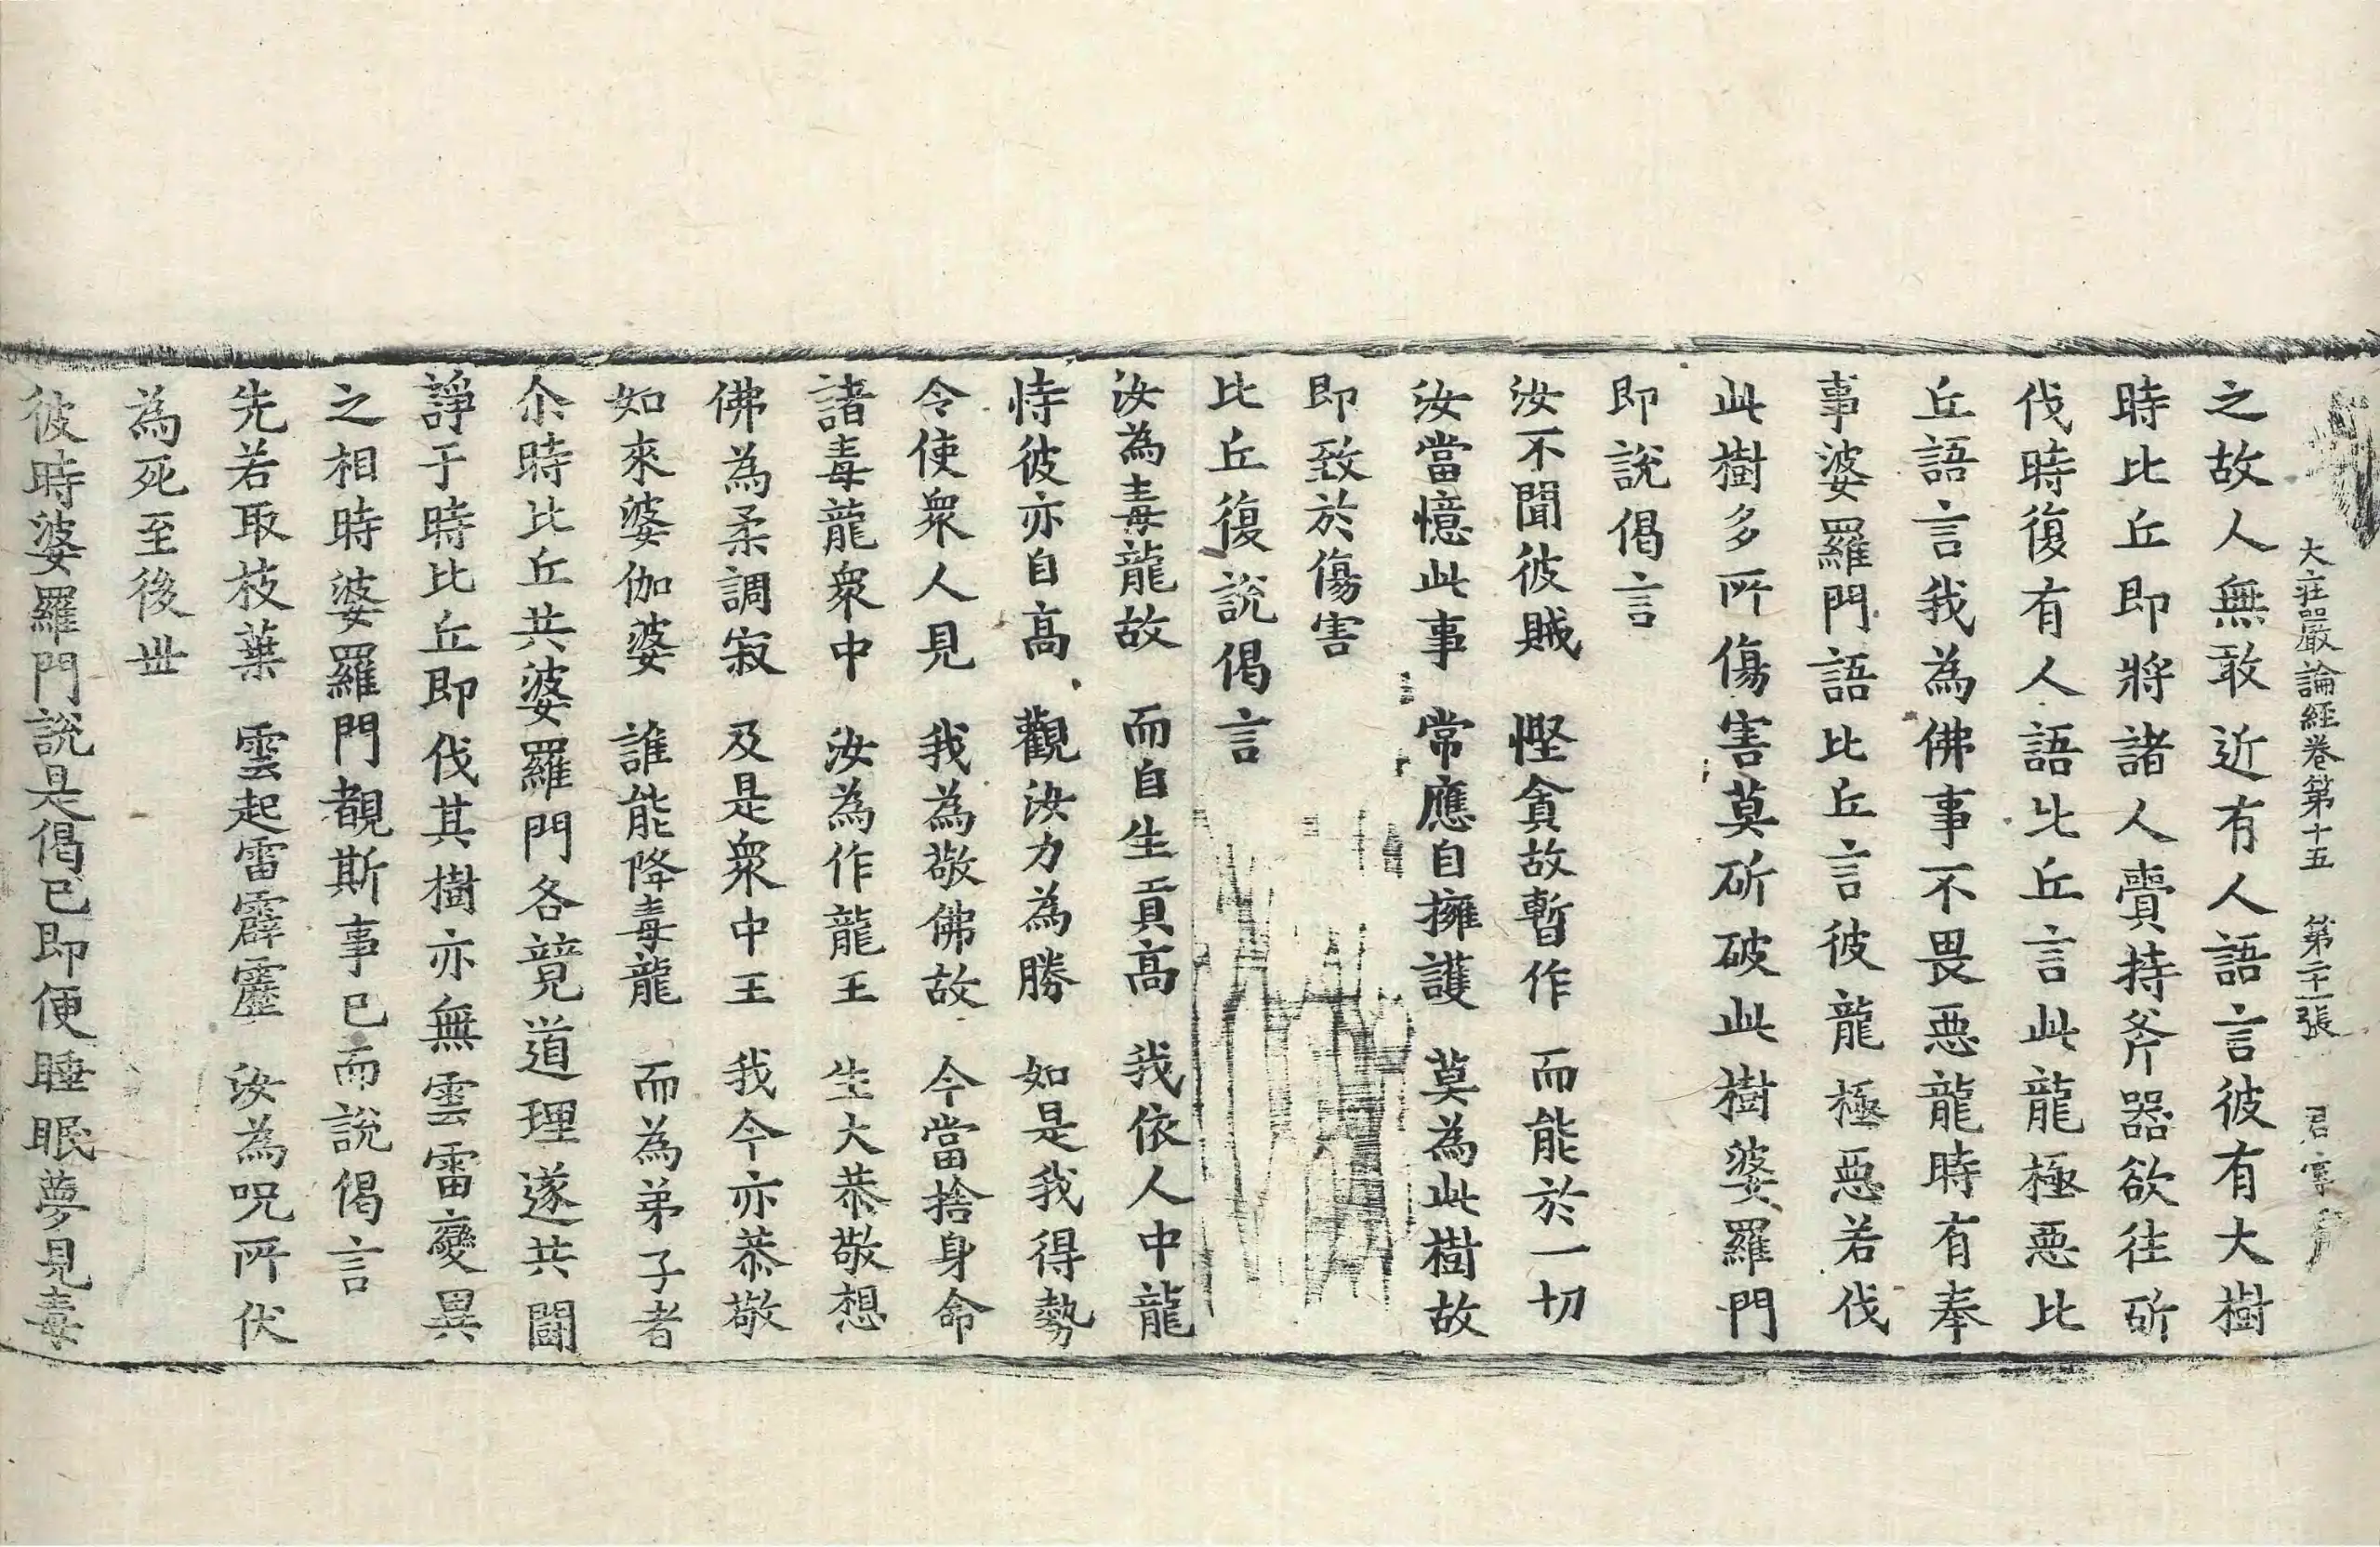 大莊嚴論經卷第十五　第二十一張　君幸
之故人無敢近有人語言彼有大樹
時比丘即將諸人賷持斧器欲往斫
伐時復有人語比丘言此龍極惡比
丘語言我為佛事不畏惡龍時有奉
事婆羅門語比丘言彼龍極惡若伐
此樹多所傷害莫斫破此樹婆羅門
即說偈言
汝不聞彼賊　慳貪故暫作　而能於一切
汝當憶此事　常應自擁護　莫為此樹故
即致於傷害
比丘復說偈言
汝為毒龍故　而自生貢高　我依人中龍
恃彼亦自高　觀汝力為勝　如是我得勢
令使衆人見　我為敬佛故　今當捨身命
諸毒龍衆中　汝為作龍王　生大恭敬想
佛為柔調寂　及是衆中王　我今亦恭敬
如來婆伽婆　誰能降毒龍　而為弟子者
尒時比丘共婆羅門各競道理遂共鬪
諍于時比丘即伐其樹亦無雲雷變異
之相時婆羅門覩斯事已而說偈言
先若取枝葉　雲起雷霹靂　汝為呪所伏
為死至後世
彼時婆羅門說是偈已即便睡眠夢見毒